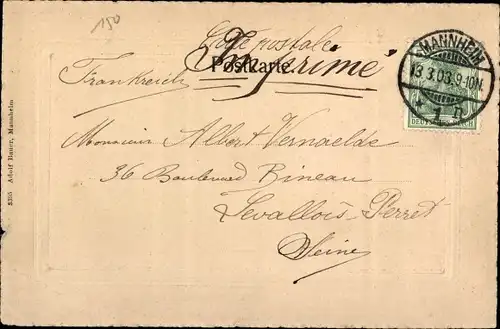 150
Carte postale
Imprimé
Postkarte.
(Frankreich)
MANNHEIM
13.3.03.9-10N.
* 1 n
DEUTSCHES REICH
Monsieur Albert Vernaelde
36 Boulevard Bineau
Levallois-Perret
Seine
8395 Adolf Bauer, Mannheim